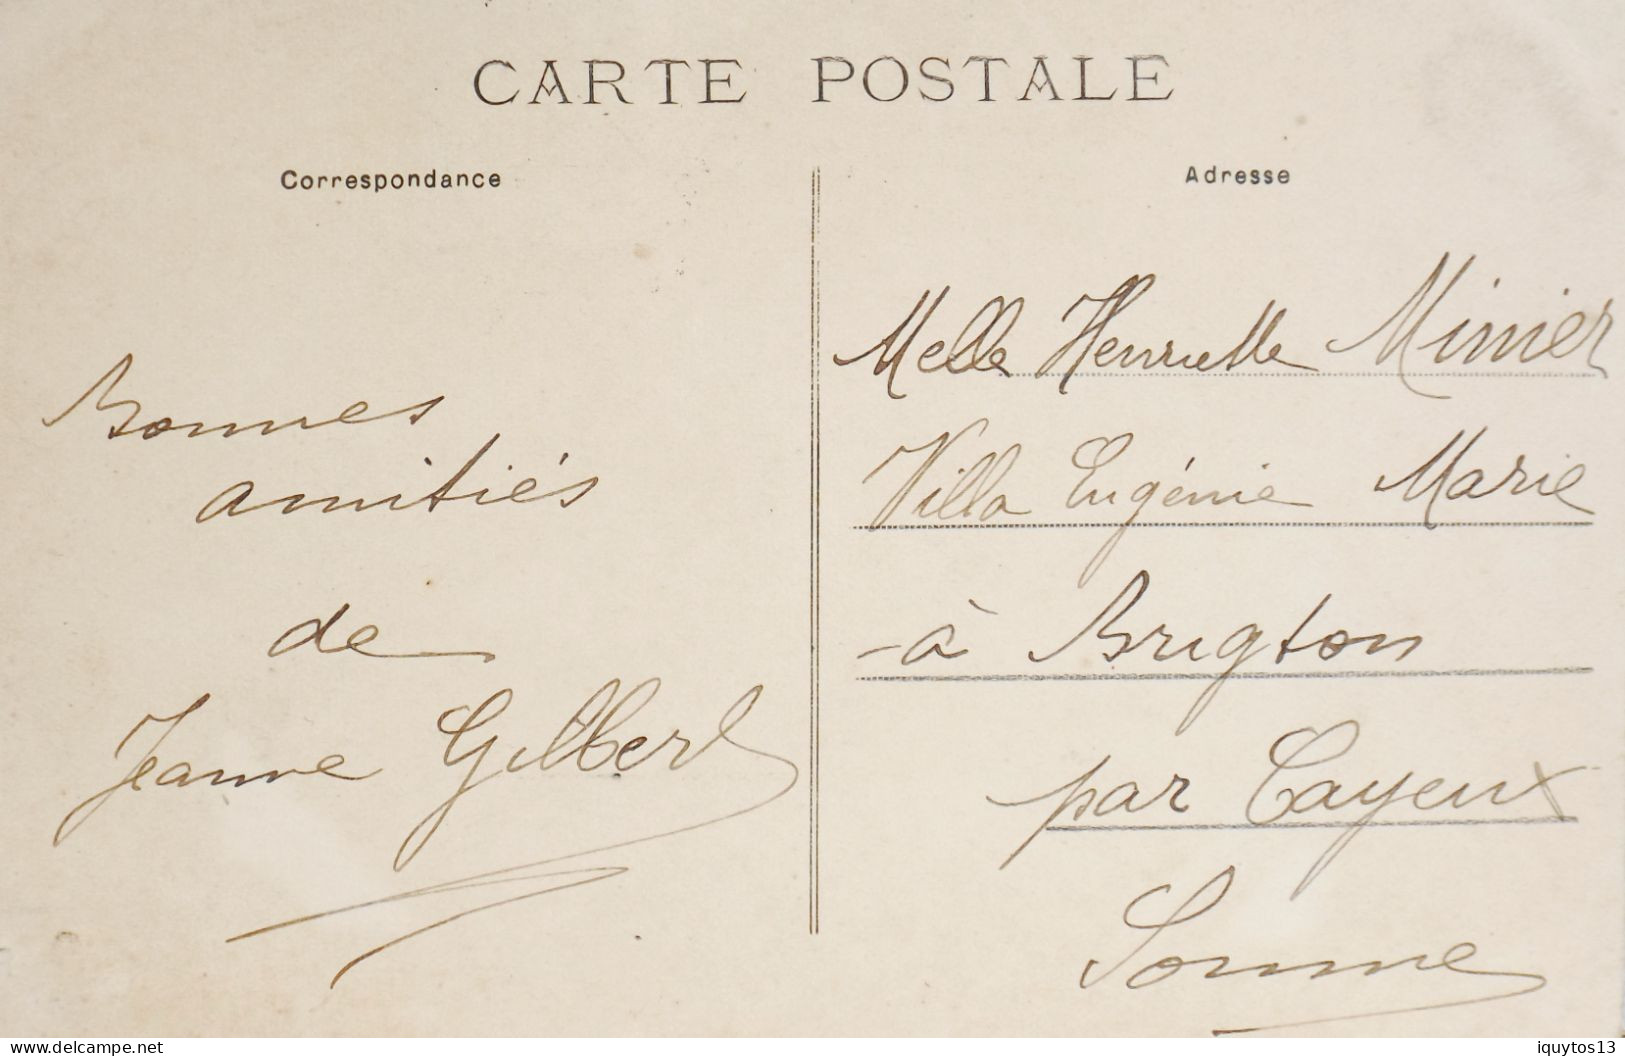 CARTE POSTALE
Correspondance
Bonnes
amitiés
de
Jeanne Gilbert
Adresse
Melle Henriette Minier
Villa Eugénie Marie
- à Brigton
par Cayeux
Somme
www.delcampe.net
iquytos13